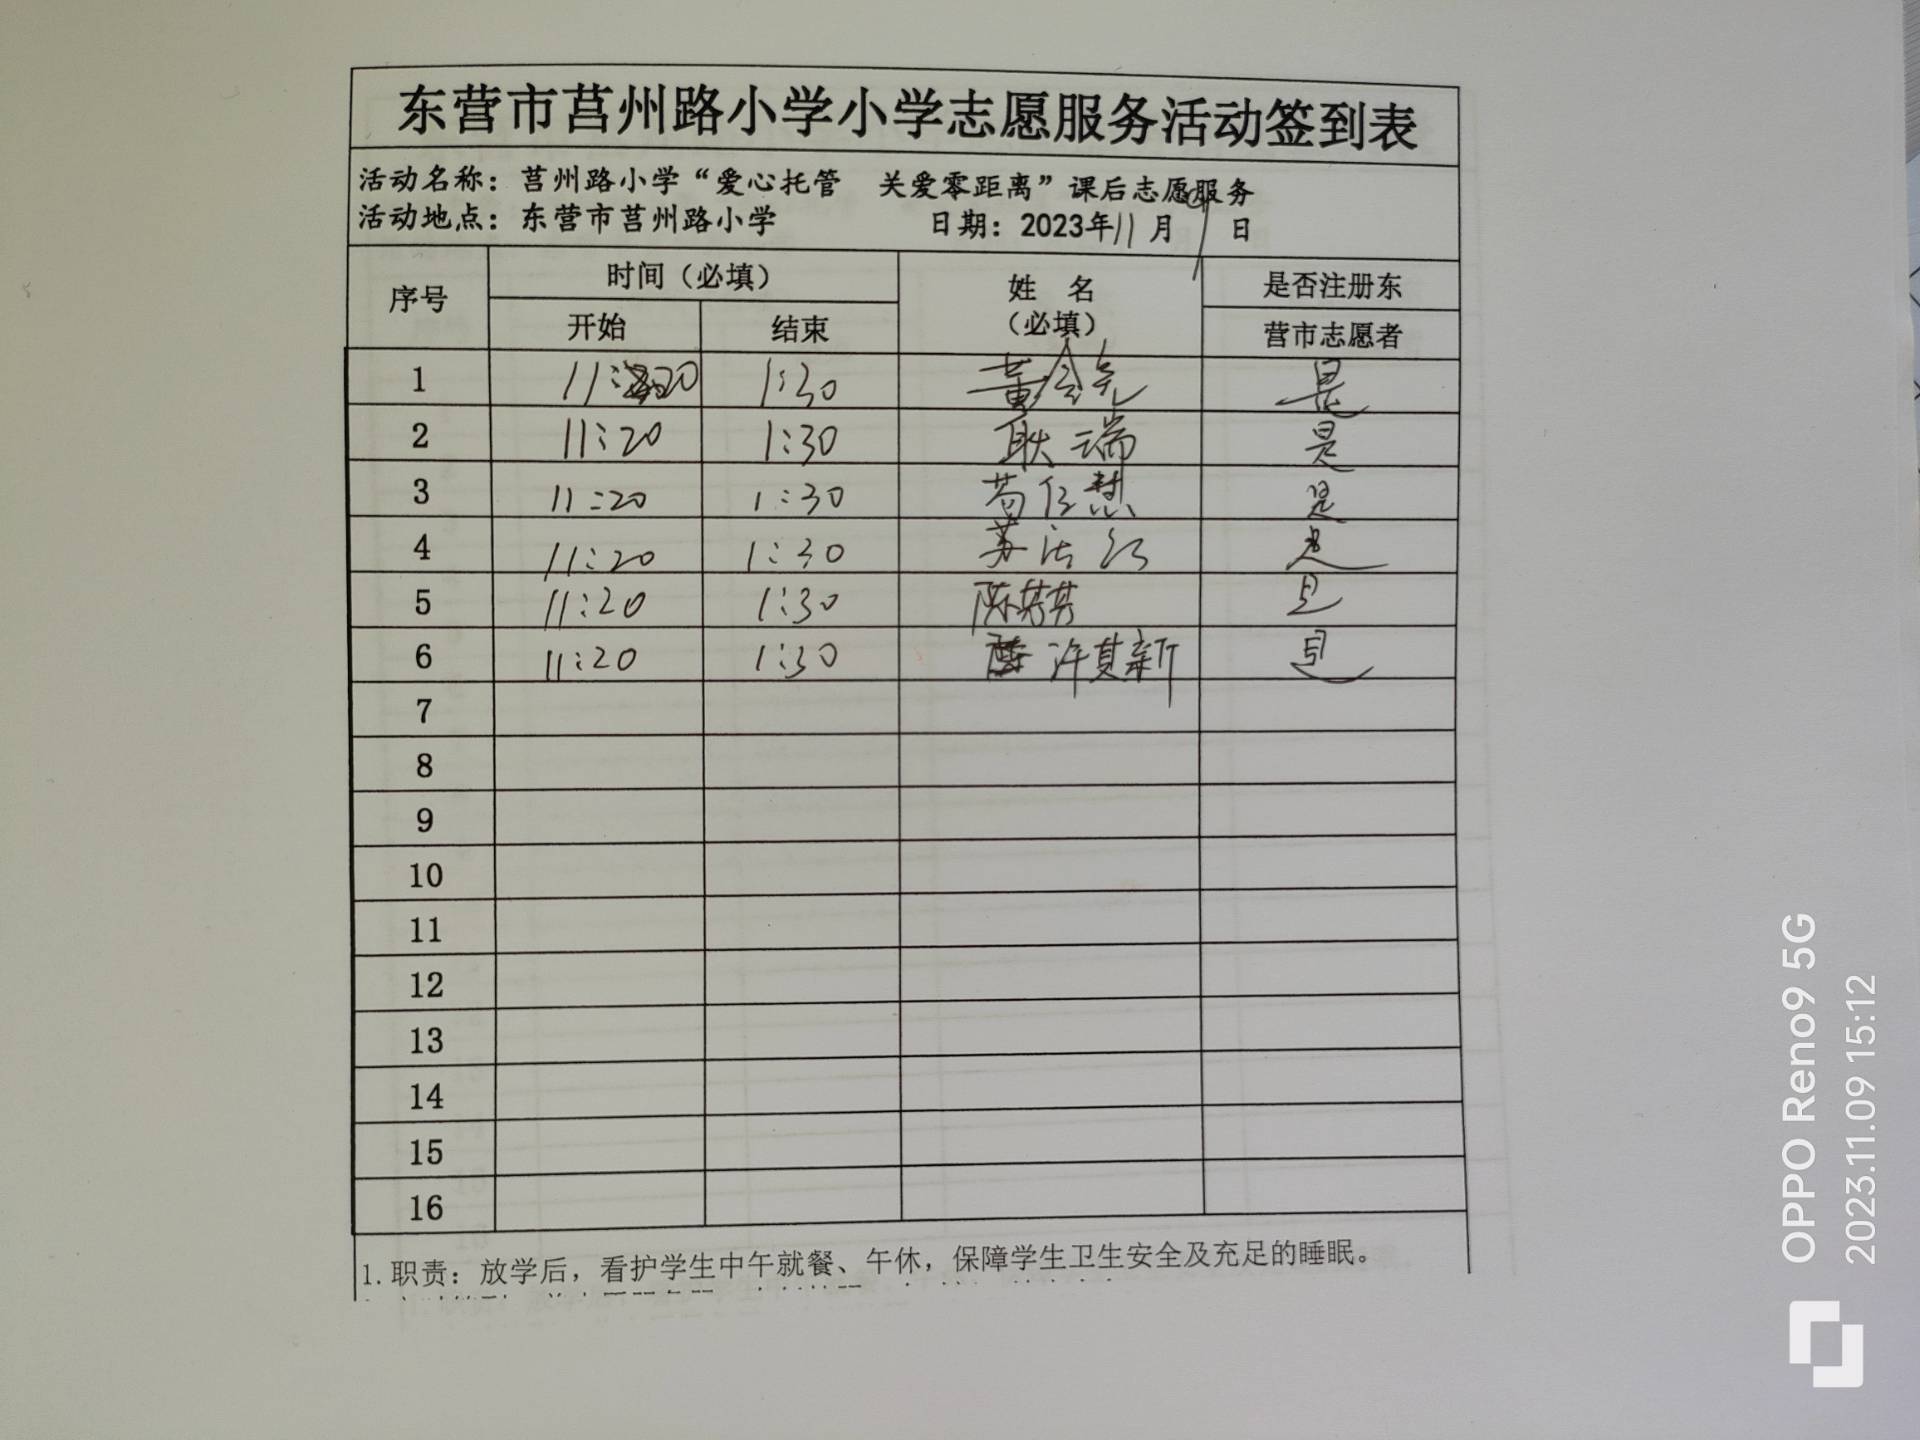 东营市莒州路小学小学志愿服务活动签到表
活动名称：莒州路小学“爱心托管 关爱零距离”课后志愿服务
活动地点：东营市莒州路小学 日期：2023年11月9日
序号 时间（必填） 姓 名（必填） 是否注册东营市志愿者
开始 结束
1 11:20 1:30 黄 是
2 11:20 1:30 耿瑞 是
3 11:20 1:30 是
4 11:20 1:30 苏洁 是
5 11:20 1:30 陈芳芳 是
6 11:20 1:30 许其新 是
7
8
9
10
11
12
13
14
15
16
1. 职责：放学后，看护学生中午就餐、午休，保障学生卫生安全及充足的睡眠。
OPPO Reno9 5G
2023.11.09 15:12